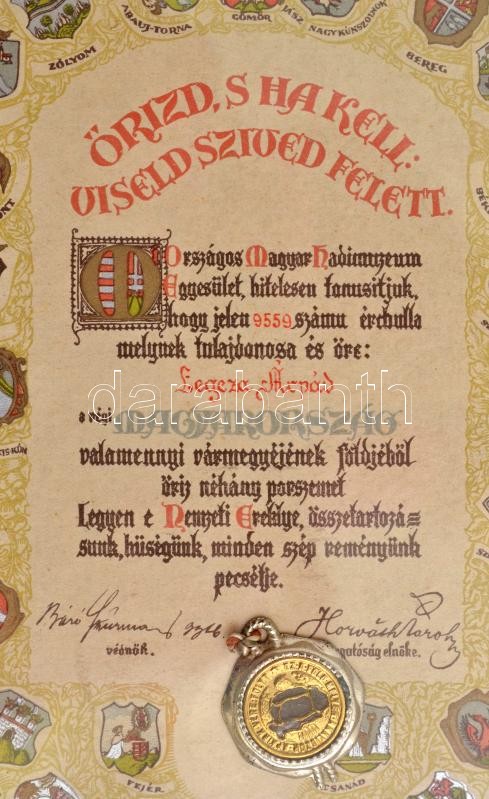 ZÓLYOM
ABAUJ-TORNA
GÖMÖR
JÁSZ
NAGYKUNSZOLNOK
BEREG
ŐRIZD, S HA KELL:
VISELD SZIVED FELETT.
Országos Magyar Hadimuzeum
Egyesület, hitelesen tanusitjuk,
hogy jelen 9559 számu ércbulla
melynek tulajdonosa és őre:
Legeza Árpád
a régi MAGYARORSZÁG
valamennyi vármegyéjének földjéből
őriz néhány porszemet
Legyen e Nemzeti Ereklye, összetartozá=
sunk, hüségünk, minden szép reményünk
pecsétje.
Báró
Horváth Károly
védnök.
gatóság elnöke.
FEJÉR
CSANÁD
darabanth